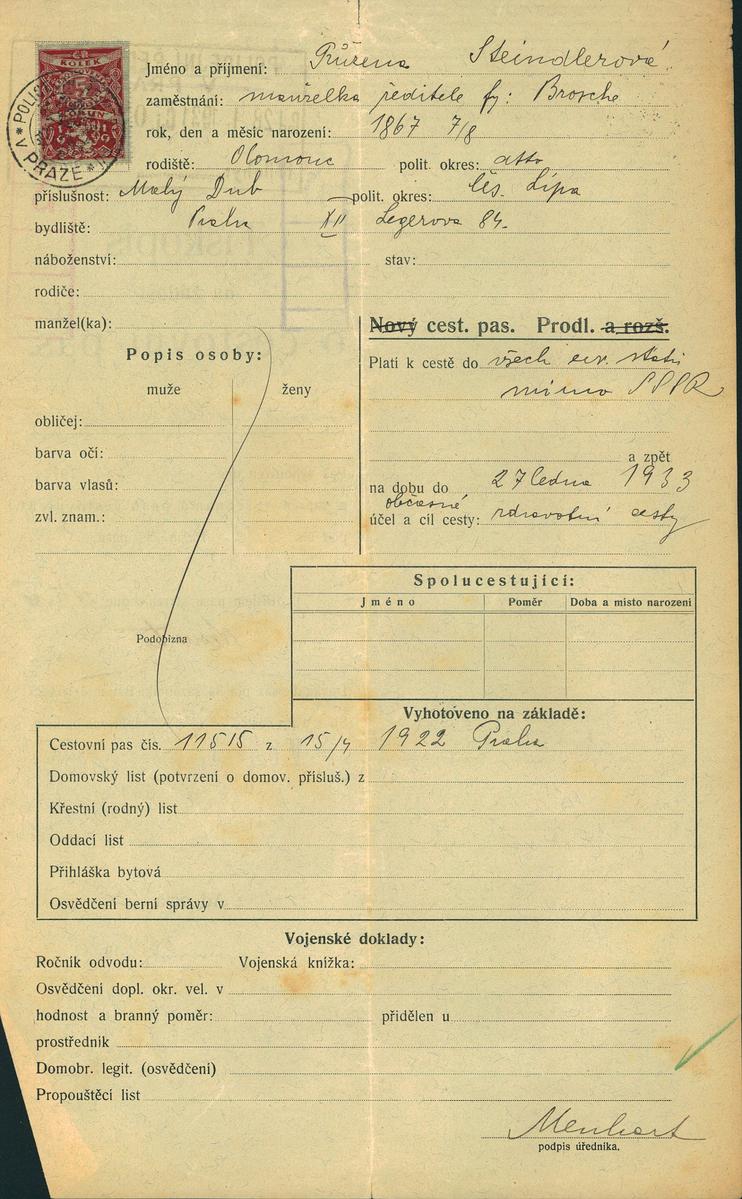 KOLEK
5
KORUN
1919
POLIC
V PRAZE
Jméno a příjmení: Růžena Steindlerová
zaměstnání: manželka ředitele fy: Brosche
rok, den a měsíc narození: 1867 7/8
rodiště: Olomouc polit. okres: dtto
příslušnost: Malý Dub polit. okres: Čes. Lípa
bydliště: Praha XII Legerova 84.
náboženství: stav:
rodiče:
manžel(ka):
Nový cest. pas. Prodl. a rozš.
Popis osoby:
muže ženy
obličej:
barva očí:
barva vlasů:
zvl. znam.:
Podobizna
Platí k cestě do všech evr. států
mimo SSSR
a zpět
na dobu do 27 ledna 1933
občasné
účel a cíl cesty: zdravotní cesty
Spolucestující:
Jméno Poměr Doba a místo narození
Vyhotoveno na základě:
Cestovní pas čís. 11515 z 15/4 1922 Praha
Domovský list (potvrzení o domov. přísluš.) z
Křestní (rodný) list
Oddací list
Přihláška bytová
Osvědčení berní správy v
Vojenské doklady:
Ročník odvodu: Vojenská knížka:
Osvědčení dopl. okr. vel. v
hodnost a branný poměr: přidělen u
prostředník
Domobr. legit. (osvědčení)
Propouštěcí list
Menhart
podpis úředníka.